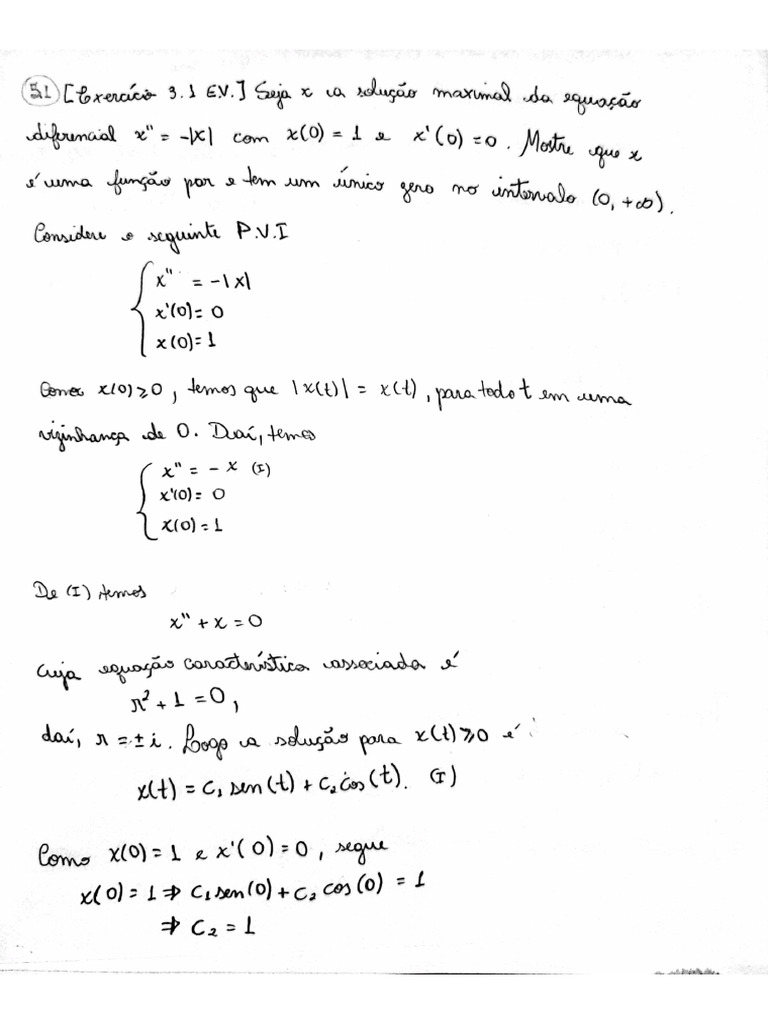 5.1 [Exercício 3.1 E.V.] Seja x a solução maximal da equação
diferencial x'' = -|x| com x(0) = 1 e x'(0) = 0. Mostre que x
é uma função par e tem um único zero no intervalo (0, +∞).
Considere o seguinte P.V.I
{ x'' = -|x|
x'(0) = 0
x(0) = 1
Como x(0) ≥ 0, temos que |x(t)| = x(t), para todo t em uma
vizinhança de 0. Daí, temos
{ x'' = - x (I)
x'(0) = 0
x(0) = 1
De (I) temos
x'' + x = 0
cuja equação característica associada é
r² + 1 = 0,
daí, r = ± i. Logo a solução para x(t) ≥ 0 é:
x(t) = C₁ sen(t) + C₂ cos(t). (I)
Como x(0) = 1 e x'(0) = 0, segue
x(0) = 1 ⇒ C₁ sen(0) + C₂ cos(0) = 1
⇒ C₂ = 1